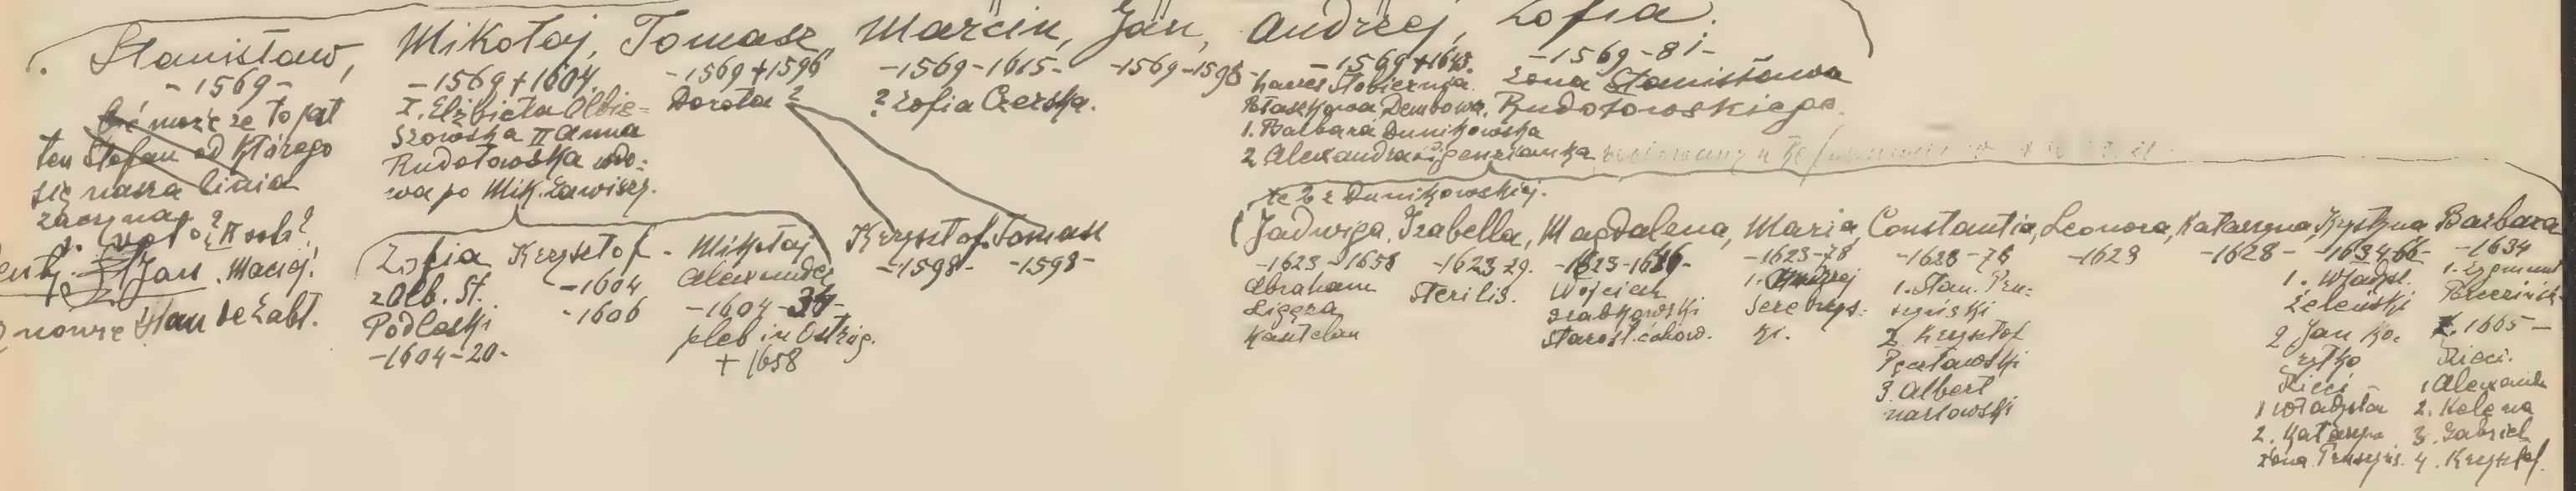 Stanisław, Mikołaj, Tomasz Marcin, Jan, Andrzej, Zofia.
-1569-
być może że to jest
ten Stefan od którego
się nasza linia
zaczyna?
Jan. Maciej.
-1569+1604.
I. Elżbieta Olbie=
szowska II Anna
Rudołowska wdo-
wa po Mik. Zawiszy.
-1569+1596
Dorota?
-1569-1615-
? Zofia Czerska.
-1569-1598-
-1569+1643.
haeres Stobiernia
Dembowa.
1. Barbara Dunikowska
2 Alexandra Ligenzianka
-1569-81-
żona Stanisława
Rudołowskiego.
Zofia
z Olb. St.
Podleski
-1604-20-
Krzysztof-
-1604
-1606
Mikołaj
Alexander
-1604-34-
pleb in Ostróg.
+1658
Krzysztof Tomasz
-1598- -1598-
te 2 z Dunikowskiej.
Jadwiga, Izabella, Magdalena, Maria, Constantia, Leonora, Katarzyna, Krystyna Barbara
-1623-1658
Abraham
Ligęza
Kasztelan
-1623 29.
Sterilis.
-1623-1686-
Wojciech
Starost.
-1623-78
1. Andrzej
-1628-78
1. Stan.
2 Krzysztof
3. Albert
-1628
-1628-
-1634-66-
1. Władysł.
Żeleński
2 Jan
Dzieci
1 Władysław
2. Katarzyna
żona
-1634
1. Zygmunt
-1665-
Dzieci.
1 Alexander
2.
3. Gabriel
4. Krzysztof.